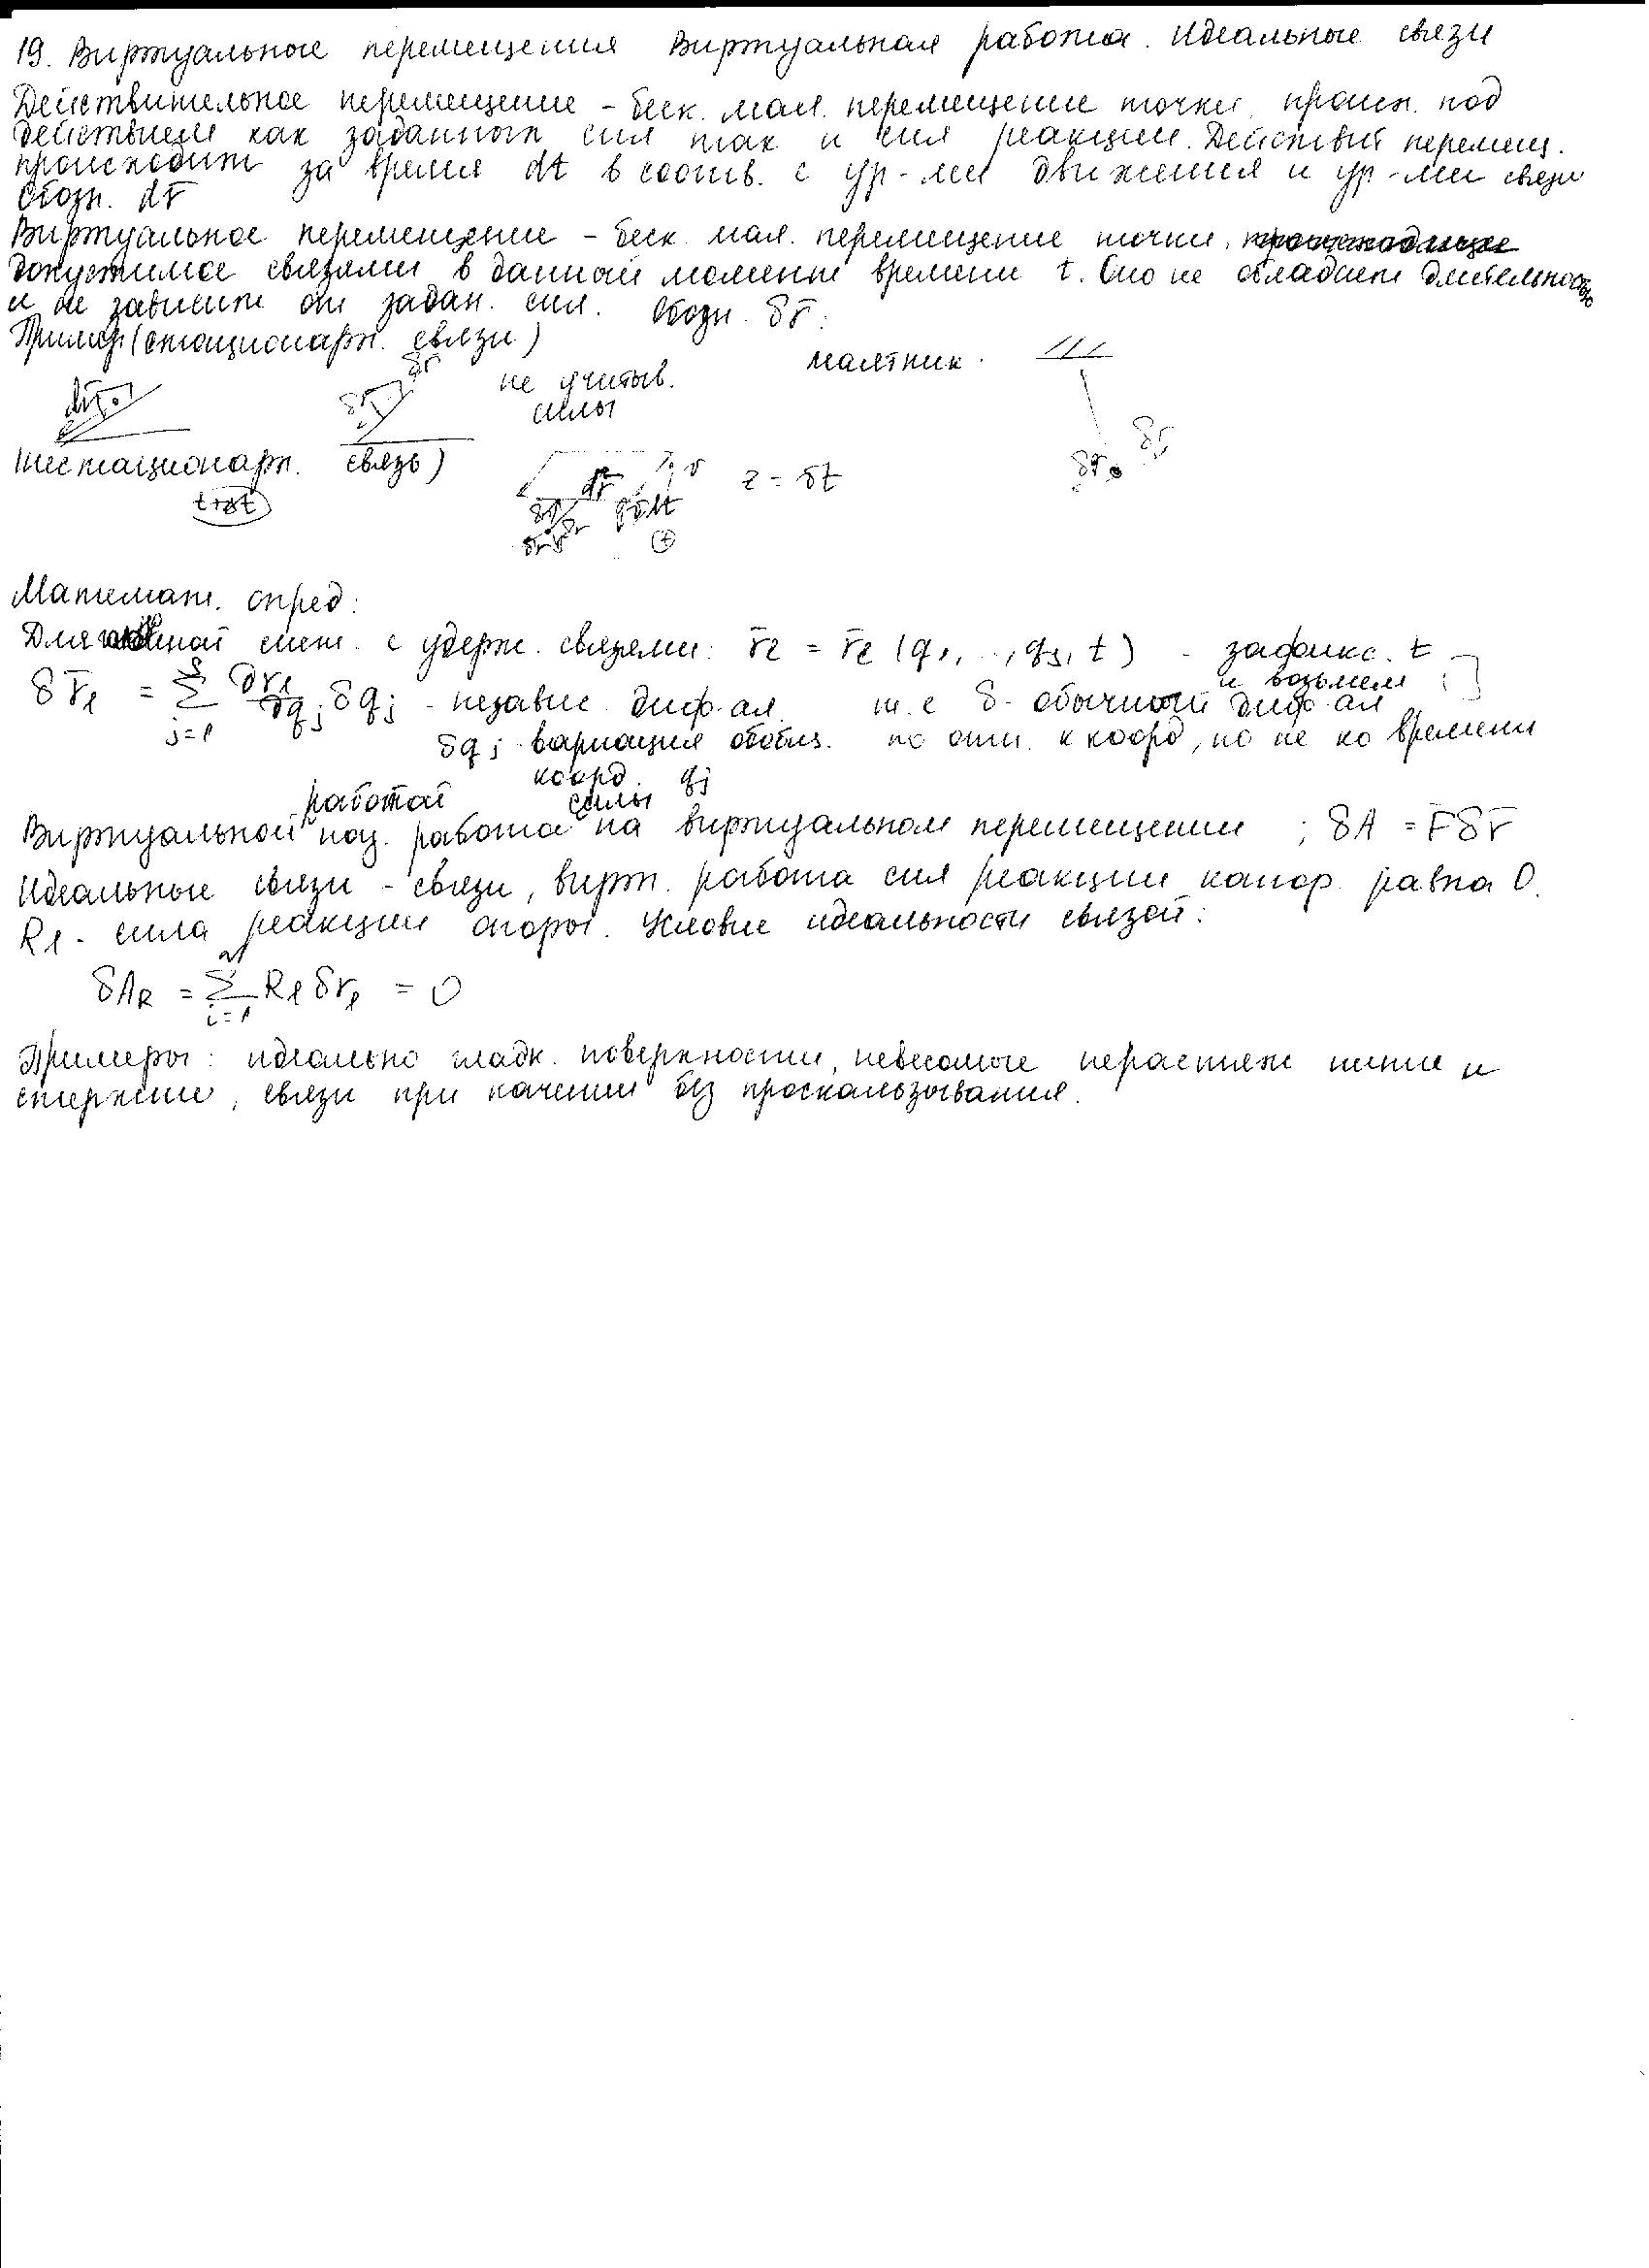 19. Виртуальные перемещения Виртуальная работа. Идеальные связи
Действительное перемещение – беск. мал. перемещение точки, происх. под
действием как заданных сил так и сил реакции. Действит перемещ.
происходит за время dt в соотв. с ур-ми движения и ур-ми связи
Обозн. dr̅
Виртуальное перемещение – беск. мал. перемещение точки,
допустимое связями в данный момент времени t. Оно не обладает длительностью
и не зависит от задан. сил. Обозн. δr̅.
Пример (стационарн. связи)
не учитыв.
силы
маятник.
δr
δr
(нестационарн. связь)
t+dt
dr̅
v
z = δt
δr
δr
(t)
Математ. опред:
Для ной сист. с удерж. связями: r̅ℓ = r̅ℓ (q₁, .., qs, t) - зафикс. t
и возьмем
δr̅ℓ = Σ ∂rℓ/∂qj δqj - независ. диф-ал. т.е δ- обычный диф-ал
s
j=1
δqj - вариация обобщ. по отн. к коорд, но не ко времени
коорд. qj
Виртуальной работой наз. работа силы на виртуальном перемещении ; δA = F̅δr̅
Идеальные связи - связи, вирт. работа сил реакции катор. равна 0.
Rℓ - сила реакции опоры. Условие идеальности связей:
N
δA_R = Σ Rℓ δrℓ = 0
i=1
Примеры: идеально гладк. поверхности, невесомые нерастяж нити и
стержни, связи при качении без проскальзывания.